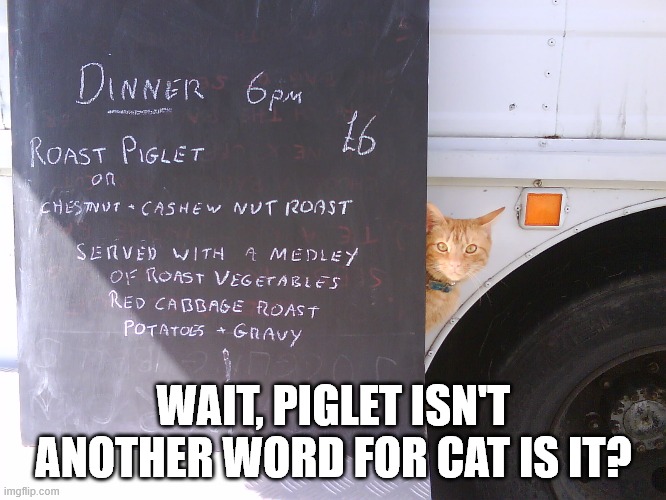 DINNER 6pm
£6
ROAST PIGLET
OR
CHESTNUT + CASHEW NUT ROAST
SERVED WITH A MEDLEY
OF ROAST VEGETABLES
RED CABBAGE ROAST
POTATOES + GRAVY
WAIT, PIGLET ISN'T
ANOTHER WORD FOR CAT IS IT?
imgflip.com